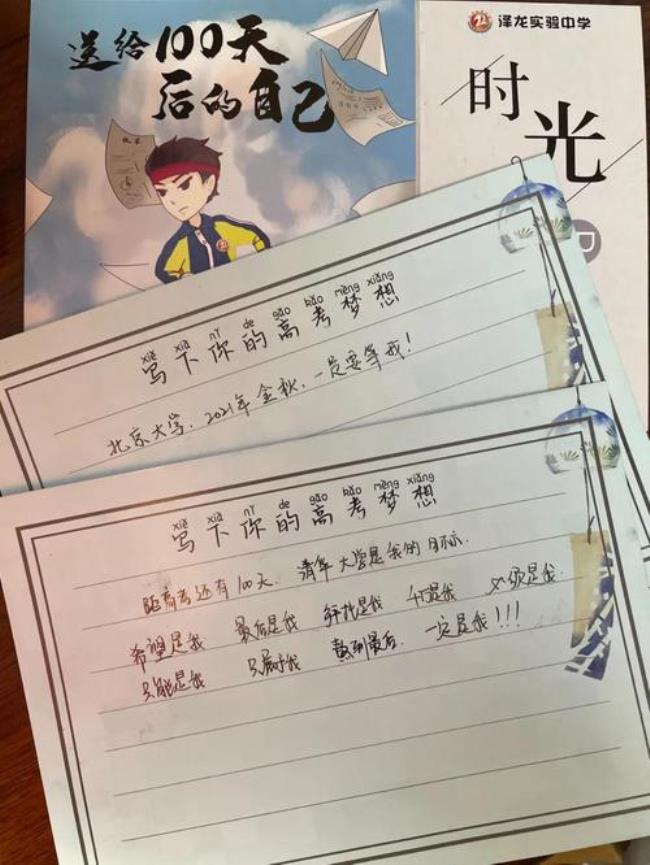 送给100天
后的自己
泽龙实验中学
时
光
P
xiě xià nǐ de gāo kǎo mèng xiǎng
写下你的高考梦想
北京大学，2021年金秋，一定要等我！
xiě xià nǐ de gāo kǎo mèng xiǎng
写下你的高考梦想
距高考还有100天．清华大学是我的目标．
希望是我 最后是我 必须是我．
只能是我 只属于我 熬到最后．一定是我！！！